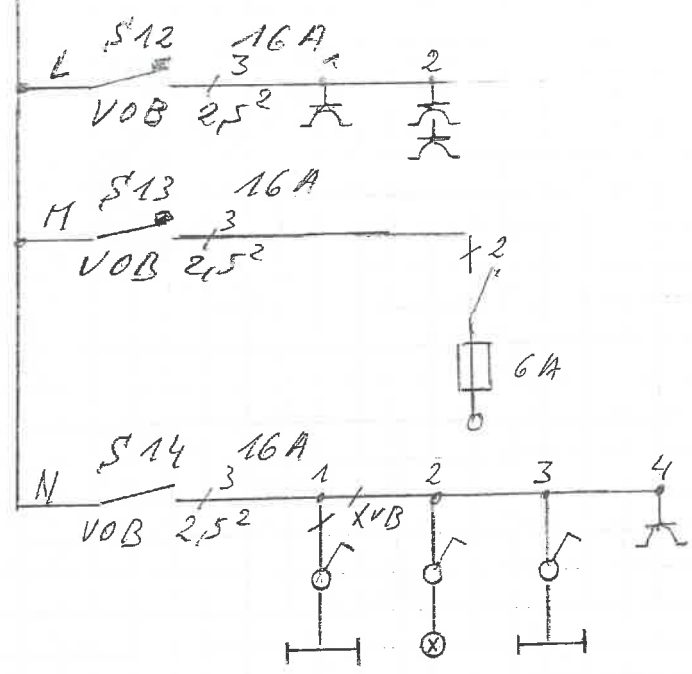 S12 16A
L 3 1 2
VOB 2,5²
S13 16A
M 3
VOB 2,5² 2
6A
S14 16A
N 3 1 2 3 4
VOB 2,5² XVB
X